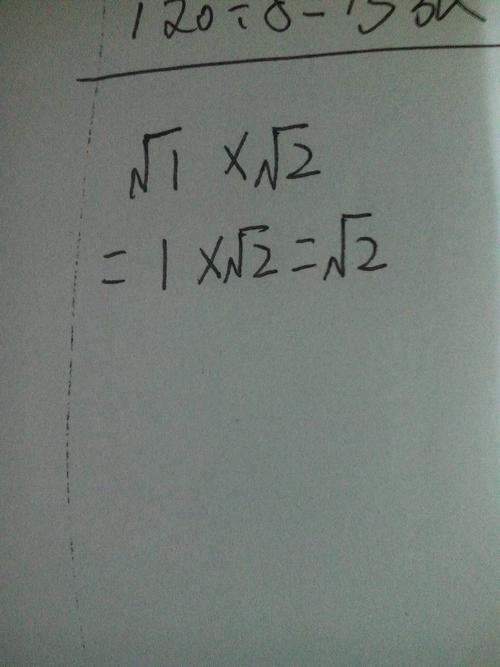 120÷8=15
√1 ×√2
= 1 ×√2 = √2